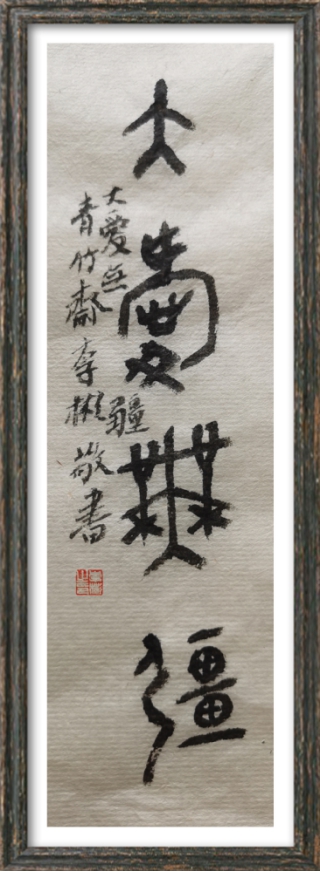 大愛無疆
大愛無疆
青竹齋李彬敬書